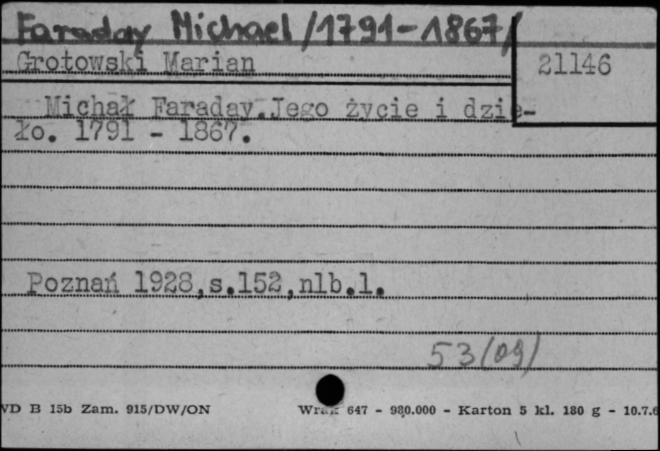 Faraday Michael /1791-1867/
Grotowski Marian
21146
Michał Faraday.Jego życie i dzie-
ło. 1791 - 1867.
Poznań 1928,s.152,nlb.1.
53(09)
WD B 15b Zam. 915/DW/ON
647 - 980.000 - Karton 5 kl. 180 g - 10.7.6